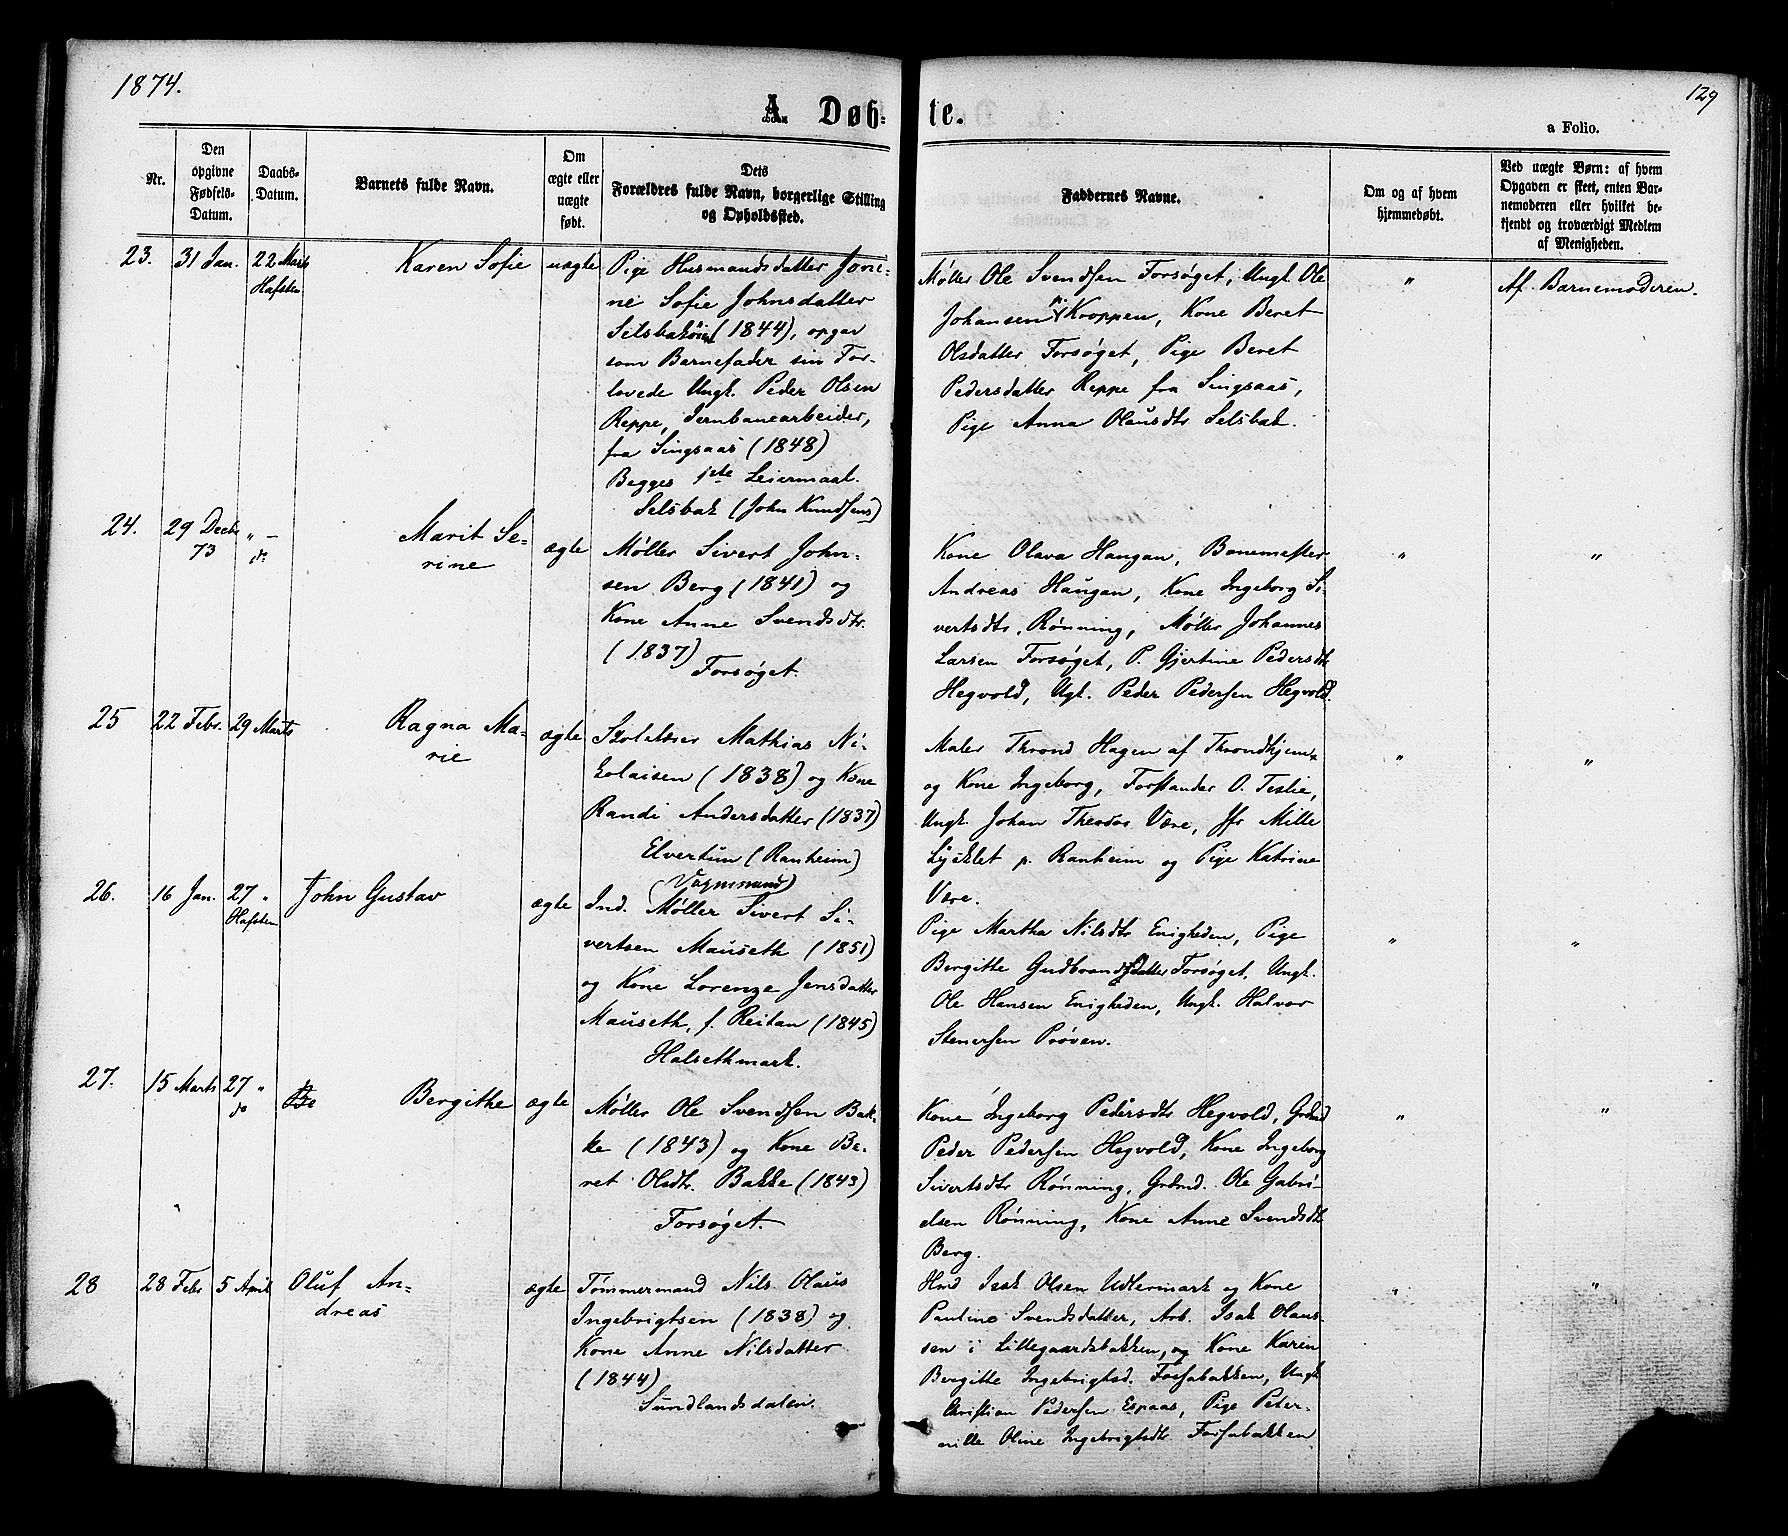 1874.
129
A. Døb-
te.
a Folio.
Nr.
Den
opgivne
Fødsels-
Datum.
Daabs-
Datum.
Barnets fulde Navn.
Om
ægte eller
uægte
født.
Dets
Forældres fulde Navn, borgerlige Stilling
og Opholdssted.
Faddernes Navne.
Om og af hvem
hjemmedøbt.
Ved uægte Børn: af hvem
Opgaven er skeet, enten Bar-
nemoderen eller hvilket be-
kjendt og troværdigt Medlem
af Menigheden.
23.
31 Jan.
22 Marts
Hafsten
Karen Sofie
uægte
Pige Husmandsdatter Jon-
ne Sofie Johnsdatter
(1844), opgav
som Barnefader sin For-
lovede Ungk. Peder Olsen
Reppe, Jernbanearbeider,
fra Singsaas (1848)
Begges 1ste Leiermaal.
Selsbak (John Knudsens)
Møller Ole Svendsen Forsøget, Ungk Ole
Johansen Kroppen, Kone Beret
Olsdatter Forsøget, Pige Beret
Pedersdatter Reppe fra Singsaas,
Pige Anna Olausdtr Selsbak.
"
Af Barnemoderen.
24.
29 Decbr
73
" -
do
Marit Se-
rine
ægte
Møller Sivert John-
sen Berg (1841) og
Kone Anne Svendsdtr.
(1837)
Forsøget.
Kone Olava Haugan, Banemester
Andreas Haugan, Kone Ingeborg Si-
vertsdtr. Rønning, Møller Johannes
Larsen Forsøget, P. Gjertine Pedersdtr
Hegvold, Ugk. Peder Pedersen Hegvold.
"
"
25
22 Febr.
29 Marts
Ragna Ma-
rie
ægte
Skolelærer Mathias Ni-
kolaisen (1838) og Kone
Randi Andersdatter (1837)
Elvertum (Ranheim)
Maler Thrond Hagen af Throndhjem
og Kone Ingeborg, Forstander O. Teslie,
Ungk. Johan Theodor Være, Jfr Mille
Lykklet p. Ranheim og Pige Katrine
Være.
"
"
26.
16 Jan.
27 "
Hafsten
John Gustav
ægte
(Vognmand)
Ind. Møller Sivert Si-
vertsen Mauseth (1851)
og Kone Lorenze Jensdatter
Mauseth, f. Reitan (1845)
Halsethmark.
Pige Martha Nilsdtr Enigheden, Pige
Bergitte Gudbrandsdatter Forsøget, Ungk.
Ole Hansen Enigheden, Ungk. Halvor
Stenersen Prøven.
"
"
27.
15 Marts
27 "
do
Be
Bergithe
ægte
Møller Ole Svendsen Bak-
ke (1843) og Kone Be-
ret Olsdtr. Bakke (1843)
Forsøget.
Kone Ingeborg Pedersdtr Hegvold, Grdmd
Peder Pedersen Hegvold, Kone Ingeborg
Sivertsdtr Rønning, Grdmd. Ole Gabri-
elsen Rønning, Kone Anne Svendsdtr
Berg.
"
"
28
28 Febr
5 April
Oluf An-
dreas
ægte
Tømmermand Nils Olaus
Ingebrigtsen (1838) og
Kone Anne Nilsdatter
(1844)
Sundlandsdalen.
Hmd Isak Olsen Udlermark og Kone
Pauline Svendsdatter, Arb. Isak Olaus-
sen i Lillegaardsbakken, og Kone Karen
Bergitte Ingebrigtsd. Forsabakken, Ungk
Christian Pedersen Espaas, Pige Peter-
nille Oline Ingebrigtsdtr Forsabakken
"
"